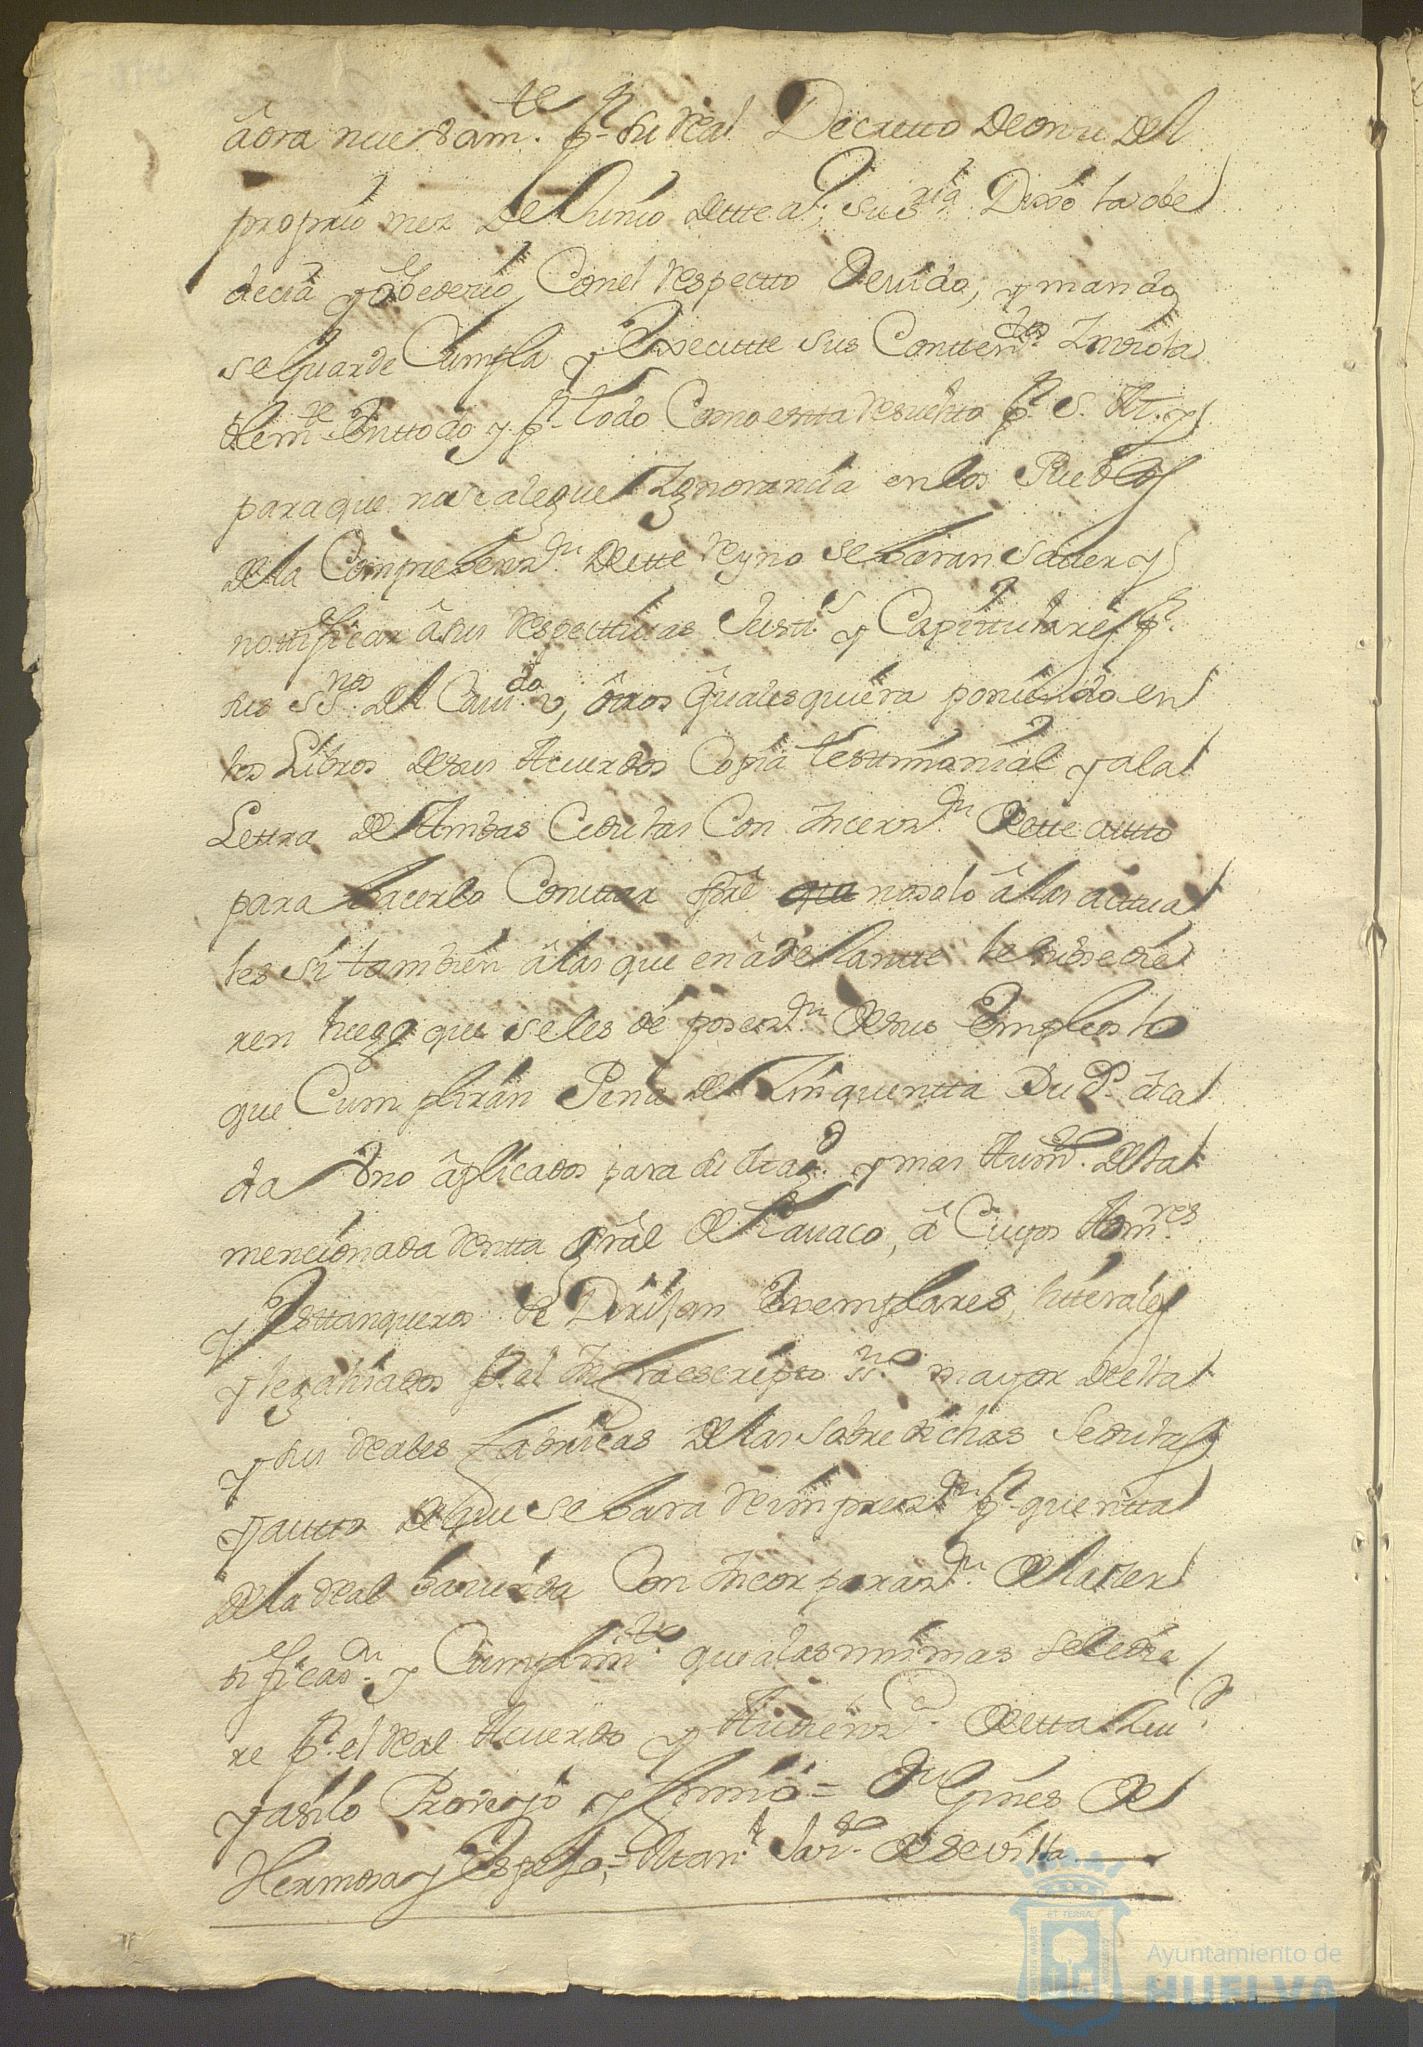 âora nuebam.te pr. su Real Decretto de onze del
proprio mes de Junio deste a; su Sria. Dixo la obe
decia y obedecio Con el respectto devido, y mando
se Guarde Cumpla y Execute sus Conttendos Inviola
blemte. En ttodo y pr. todo Como estta resuelto pr. S. M. y
para que no se alegue Ygnorancia en los Pueblos
de la Comprehenzn. deste Reyno se haran saver y
nottificar â sus respecttivas Justs. y Capitulares pr.
sus SSnos. del Cavdo. v, ôttros qualesquiera poniendo en
los Libros de sus Acuerdos Copia testimonial y a la
Lettra de Ambas Cedulas Con Incerzn. deste autto
para hacerlo Consttar qu nosolo â las acttua
les si tambien â las que en âdelantte le subcedie
ren luego que se les dé posezn. de sus Empleos lo
que Cumpliran Pena de Zinquentta Dus. â ca
da Vno âplicados para su Magd. y mas Aumto. de la
mencionada Rentta Gral de Tavaco, â Cuyos Admres
y Esttanqueros se Dirijan Exemplares, literales
y legalizados pr. el Infraescripto ssno. mayor de ella
y sus Reales Fabricas de las sobre dichas Sedulas
y auttos de que se hara Reimprezn. pr. quentta
de la Real hacienda Con Incorporazn. de la zer
tificazn. y Cumplimto. que a las mismas se le die
re pr. el Real Acuerdo y Audienza. de estta Ziud.
y asi lo Proveyo y firmo = Dn. Gines de
Hermosa y Espejo = Man. Javr. de Sevilla
Ayuntamiento de
HUELVA